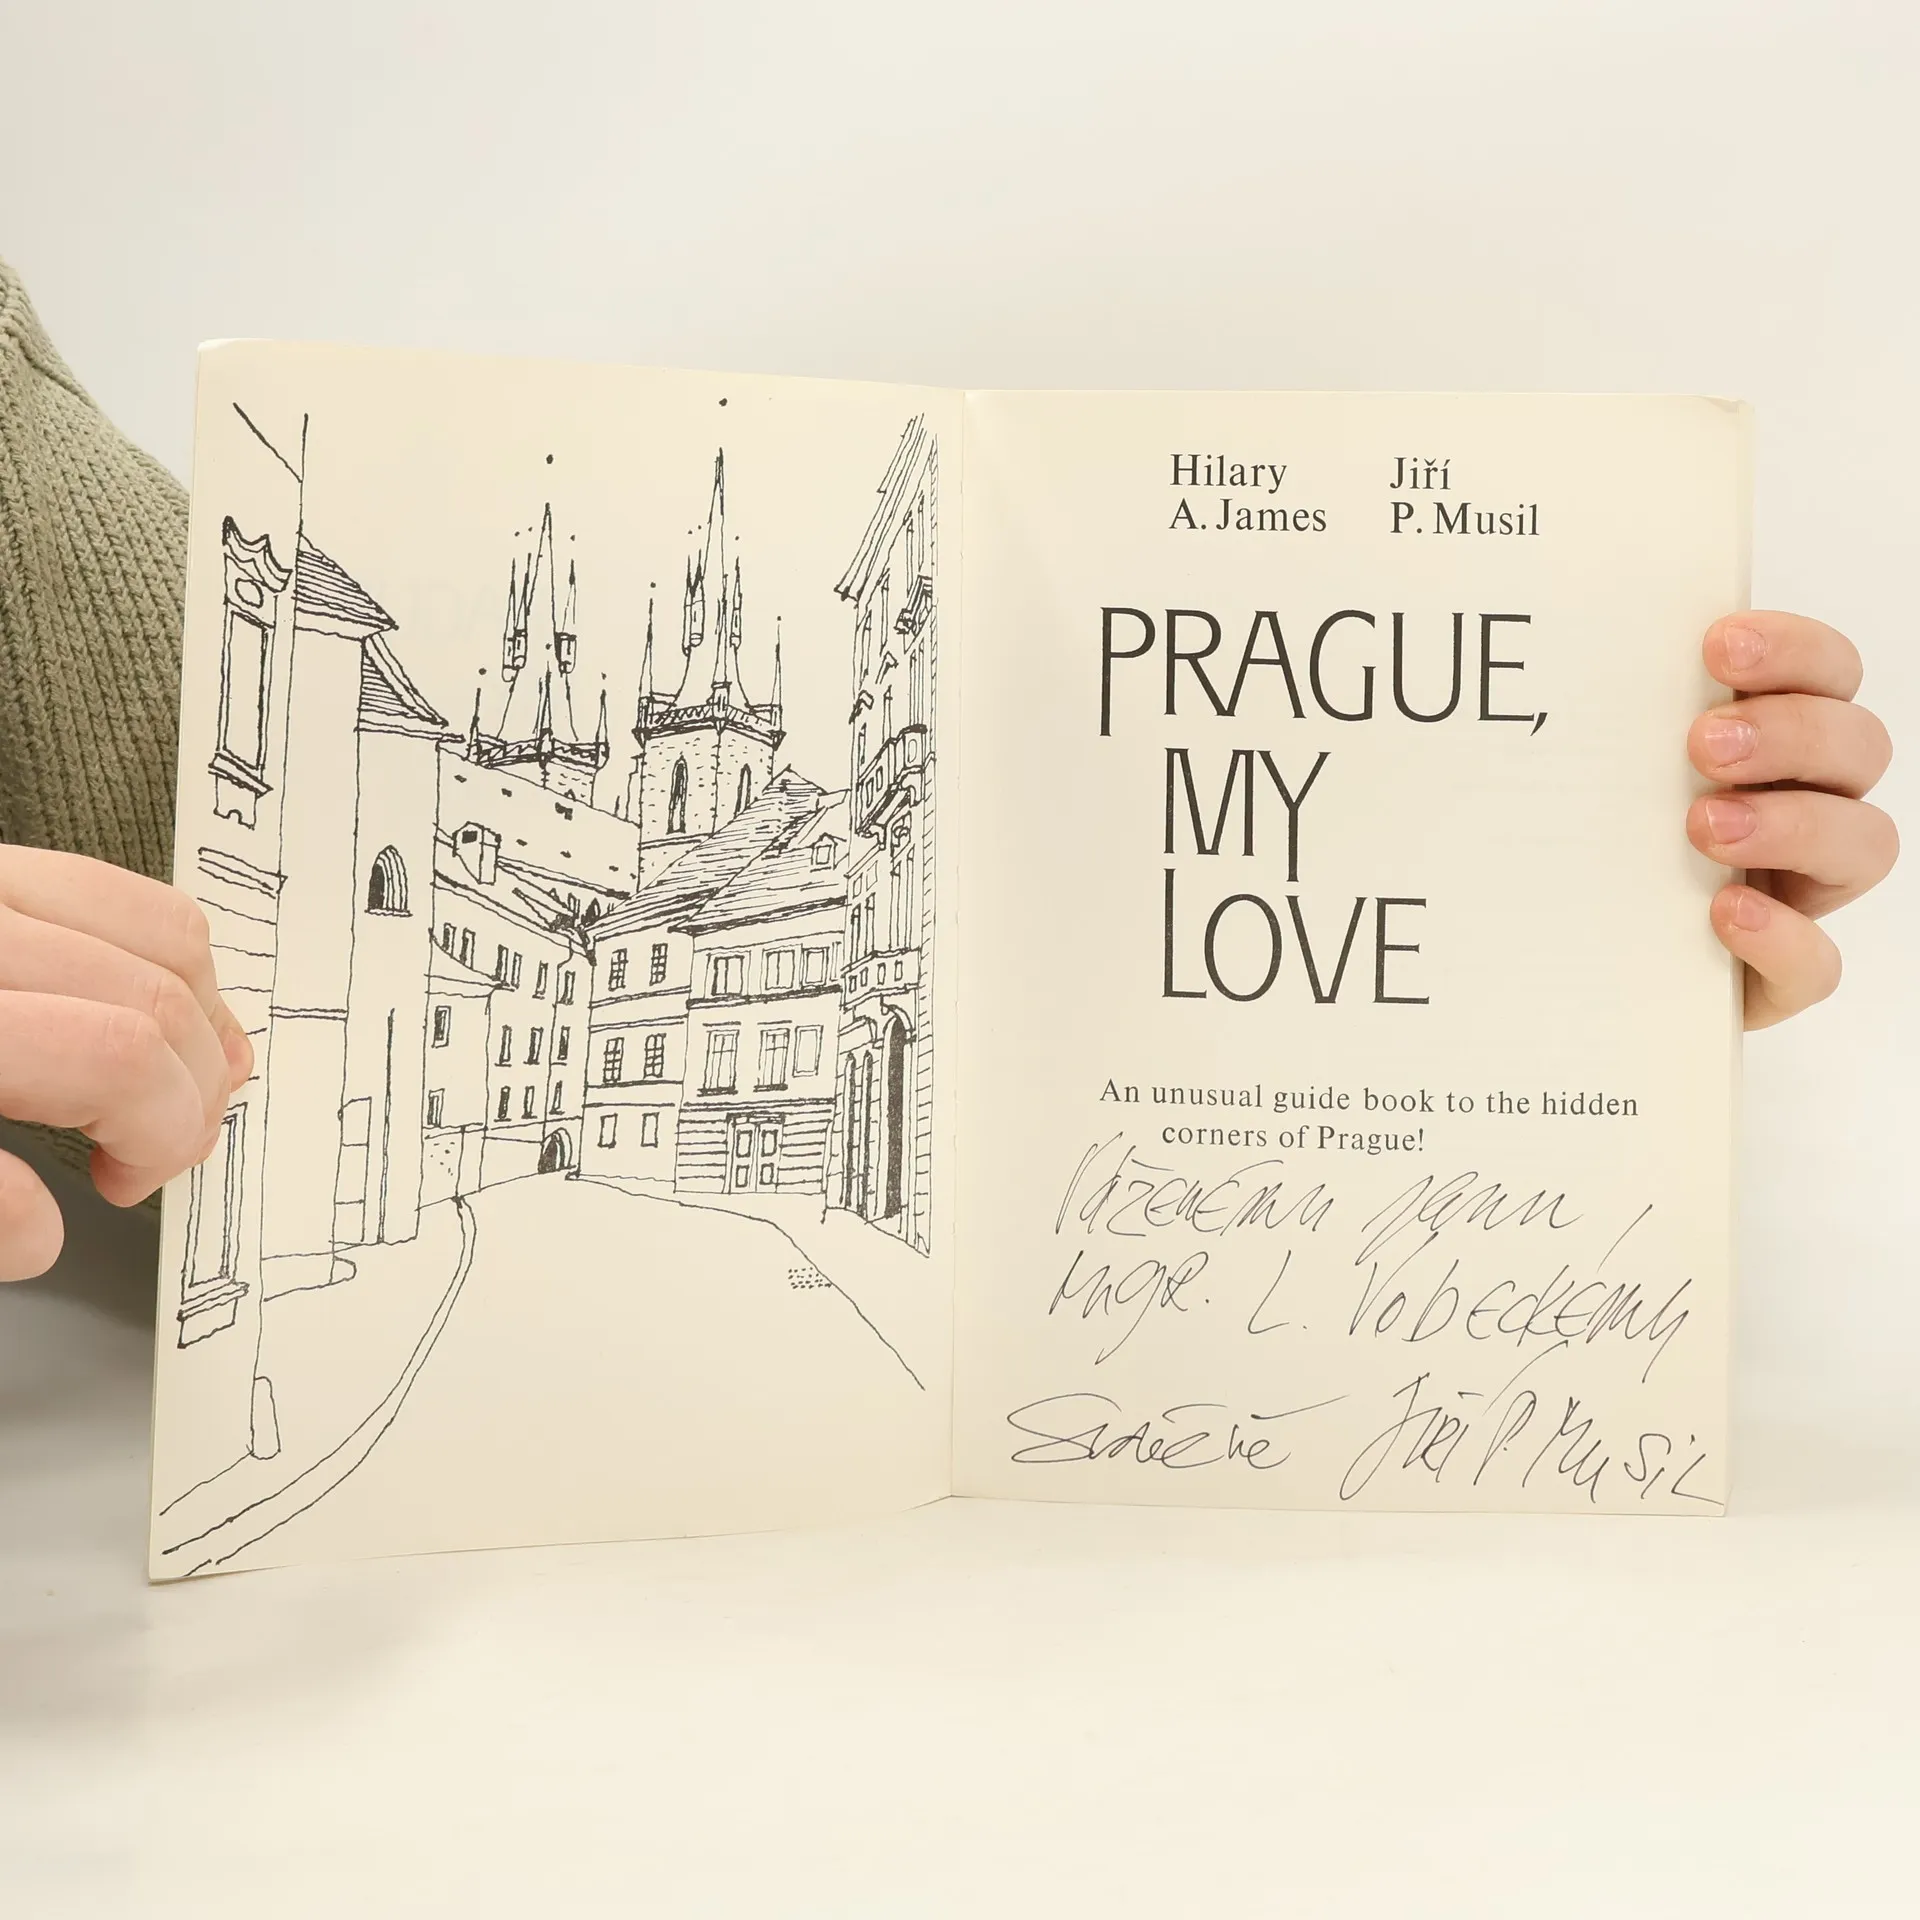 Hilary
A. James
Jiří
P. Musil
PRAGUE,
MY
LOVE
An unusual guide book to the hidden
corners of Prague!
Váženému panu,
Mgr. L. Vobeckému
Srdečně Jiří P. Musil